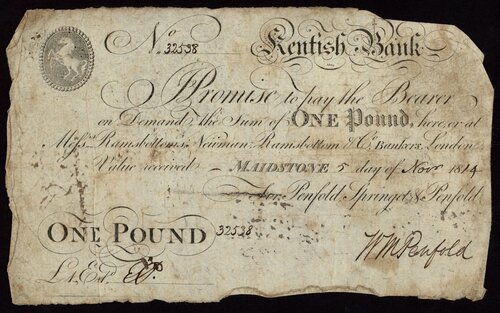 No. 32538 Kentish Bank
I Promise to pay the Bearer
on Demand the Sum of ONE POUND, here, or at
Messrs. Ramsbottoms, Newman, Ramsbottom & Co. Bankers, London
Value received MAIDSTONE 5 day of Novr 1814
For Penfold Springet & Penfold
ONE POUND 32538
Wm Penfold